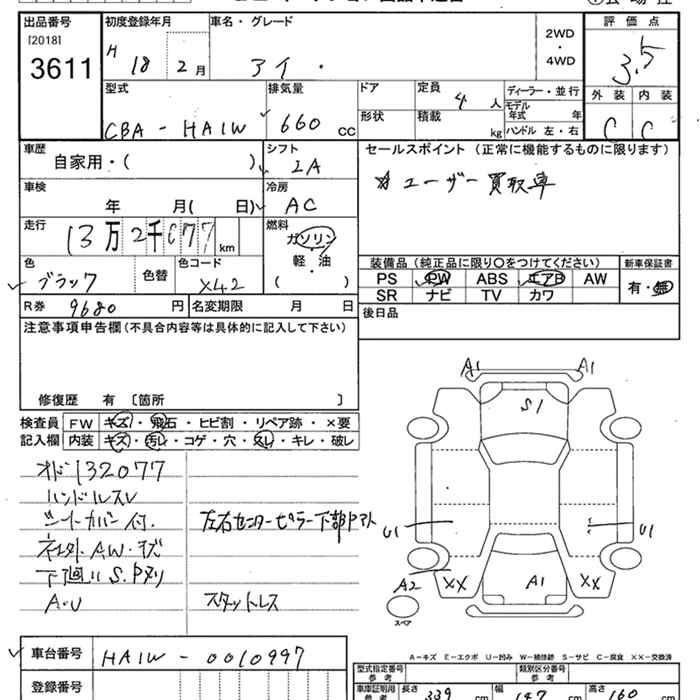 出品番号 初度登録年月 車名・グレード 評価点
[2018]
3611 H 18 2月 アイ・ 2WD・4WD 3.5
型式 排気量 ドア 定員 4人 ディーラー・並行 外装 内装
CBA-HA1W 660cc 形状 積載 kg モデル年式 年 C C
ハンドル 左・右
車歴 シフト セールスポイント (正常に機能するものに限ります)
自家用・( ) IA
☆ユーザー買取車
車検 冷房
年 月( 日) AC
走行 燃料
13万2千077km ガソリン
軽・油
( )
装備品 (純正品に限り○をつけてください) 新車保証書
PS PW ABS エアB AW 有・無
SR ナビ TV カワ
色 色替 色コード
ブラック X42
R券 9680円 名変期限 月 日 後日品
注意事項申告欄(不具合内容等は具体的に記入して下さい)
修復歴 有 〔箇所 〕
検査員記入欄
FW キズ・飛石・ヒビ割・リペア跡・×要
内装 キズ・汚レ・コゲ・穴・スレ・キレ・破レ
オド132077
ハンドルスレ
シートカバー付. 左右センターピラー下部Pアト
社外AW・キズ
下廻りS.Pヌリ
A・U スタットレス
A1 A1
S1
U1 U1
A2 XX A1 XX
スペア
車台番号 HA1W-0010997
登録番号
A-キズ E-エクボ U-凹み W-補修跡 S-サビ C-腐食 XX-交換済
型式指定番号 参考 類別区分番号 参考
車庫証明用 参考 長さ 339cm 幅 147cm 高さ 160cm